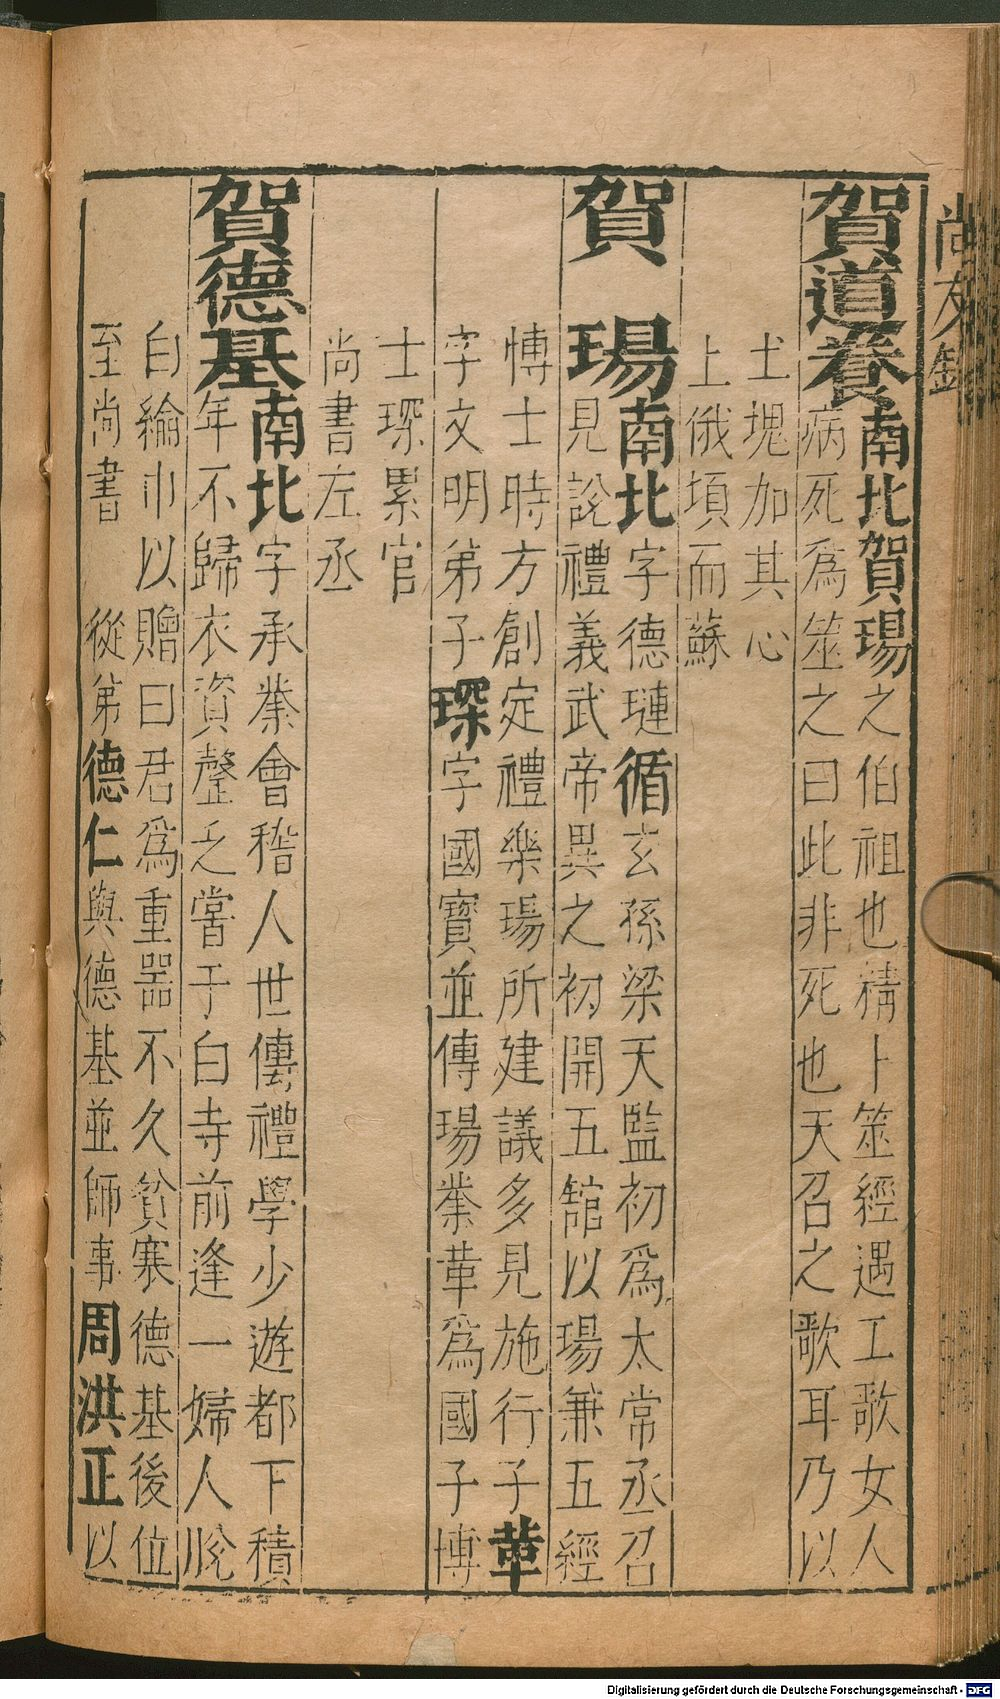 尚友錄
賀道養南北賀瑒之伯祖也精卜筮經遇工歌女人
病死爲筮之曰此非死也天召之歌耳乃以
土塊加其心
上俄頃而蘇
賀 瑒南北字德璉循玄孫梁天監初爲太常丞召
見說禮義武帝異之初開五舘以瑒兼五經
博士時方創定禮樂瑒所建議多見施行子革
字文明弟子琛字國寶並傳瑒業革爲國子博
士琛累官
尚書左丞
賀德基南北字承業會稽人世傳禮學少遊都下積
年不歸衣資罄乏嘗于白寺前逢一婦人脫
白綸巾以贈曰君爲重器不久貧寒德基後位
至尚書 從弟德仁與德基並師事周洪正以
Digitalisierung gefördert durch die Deutsche Forschungsgemeinschaft - DFG